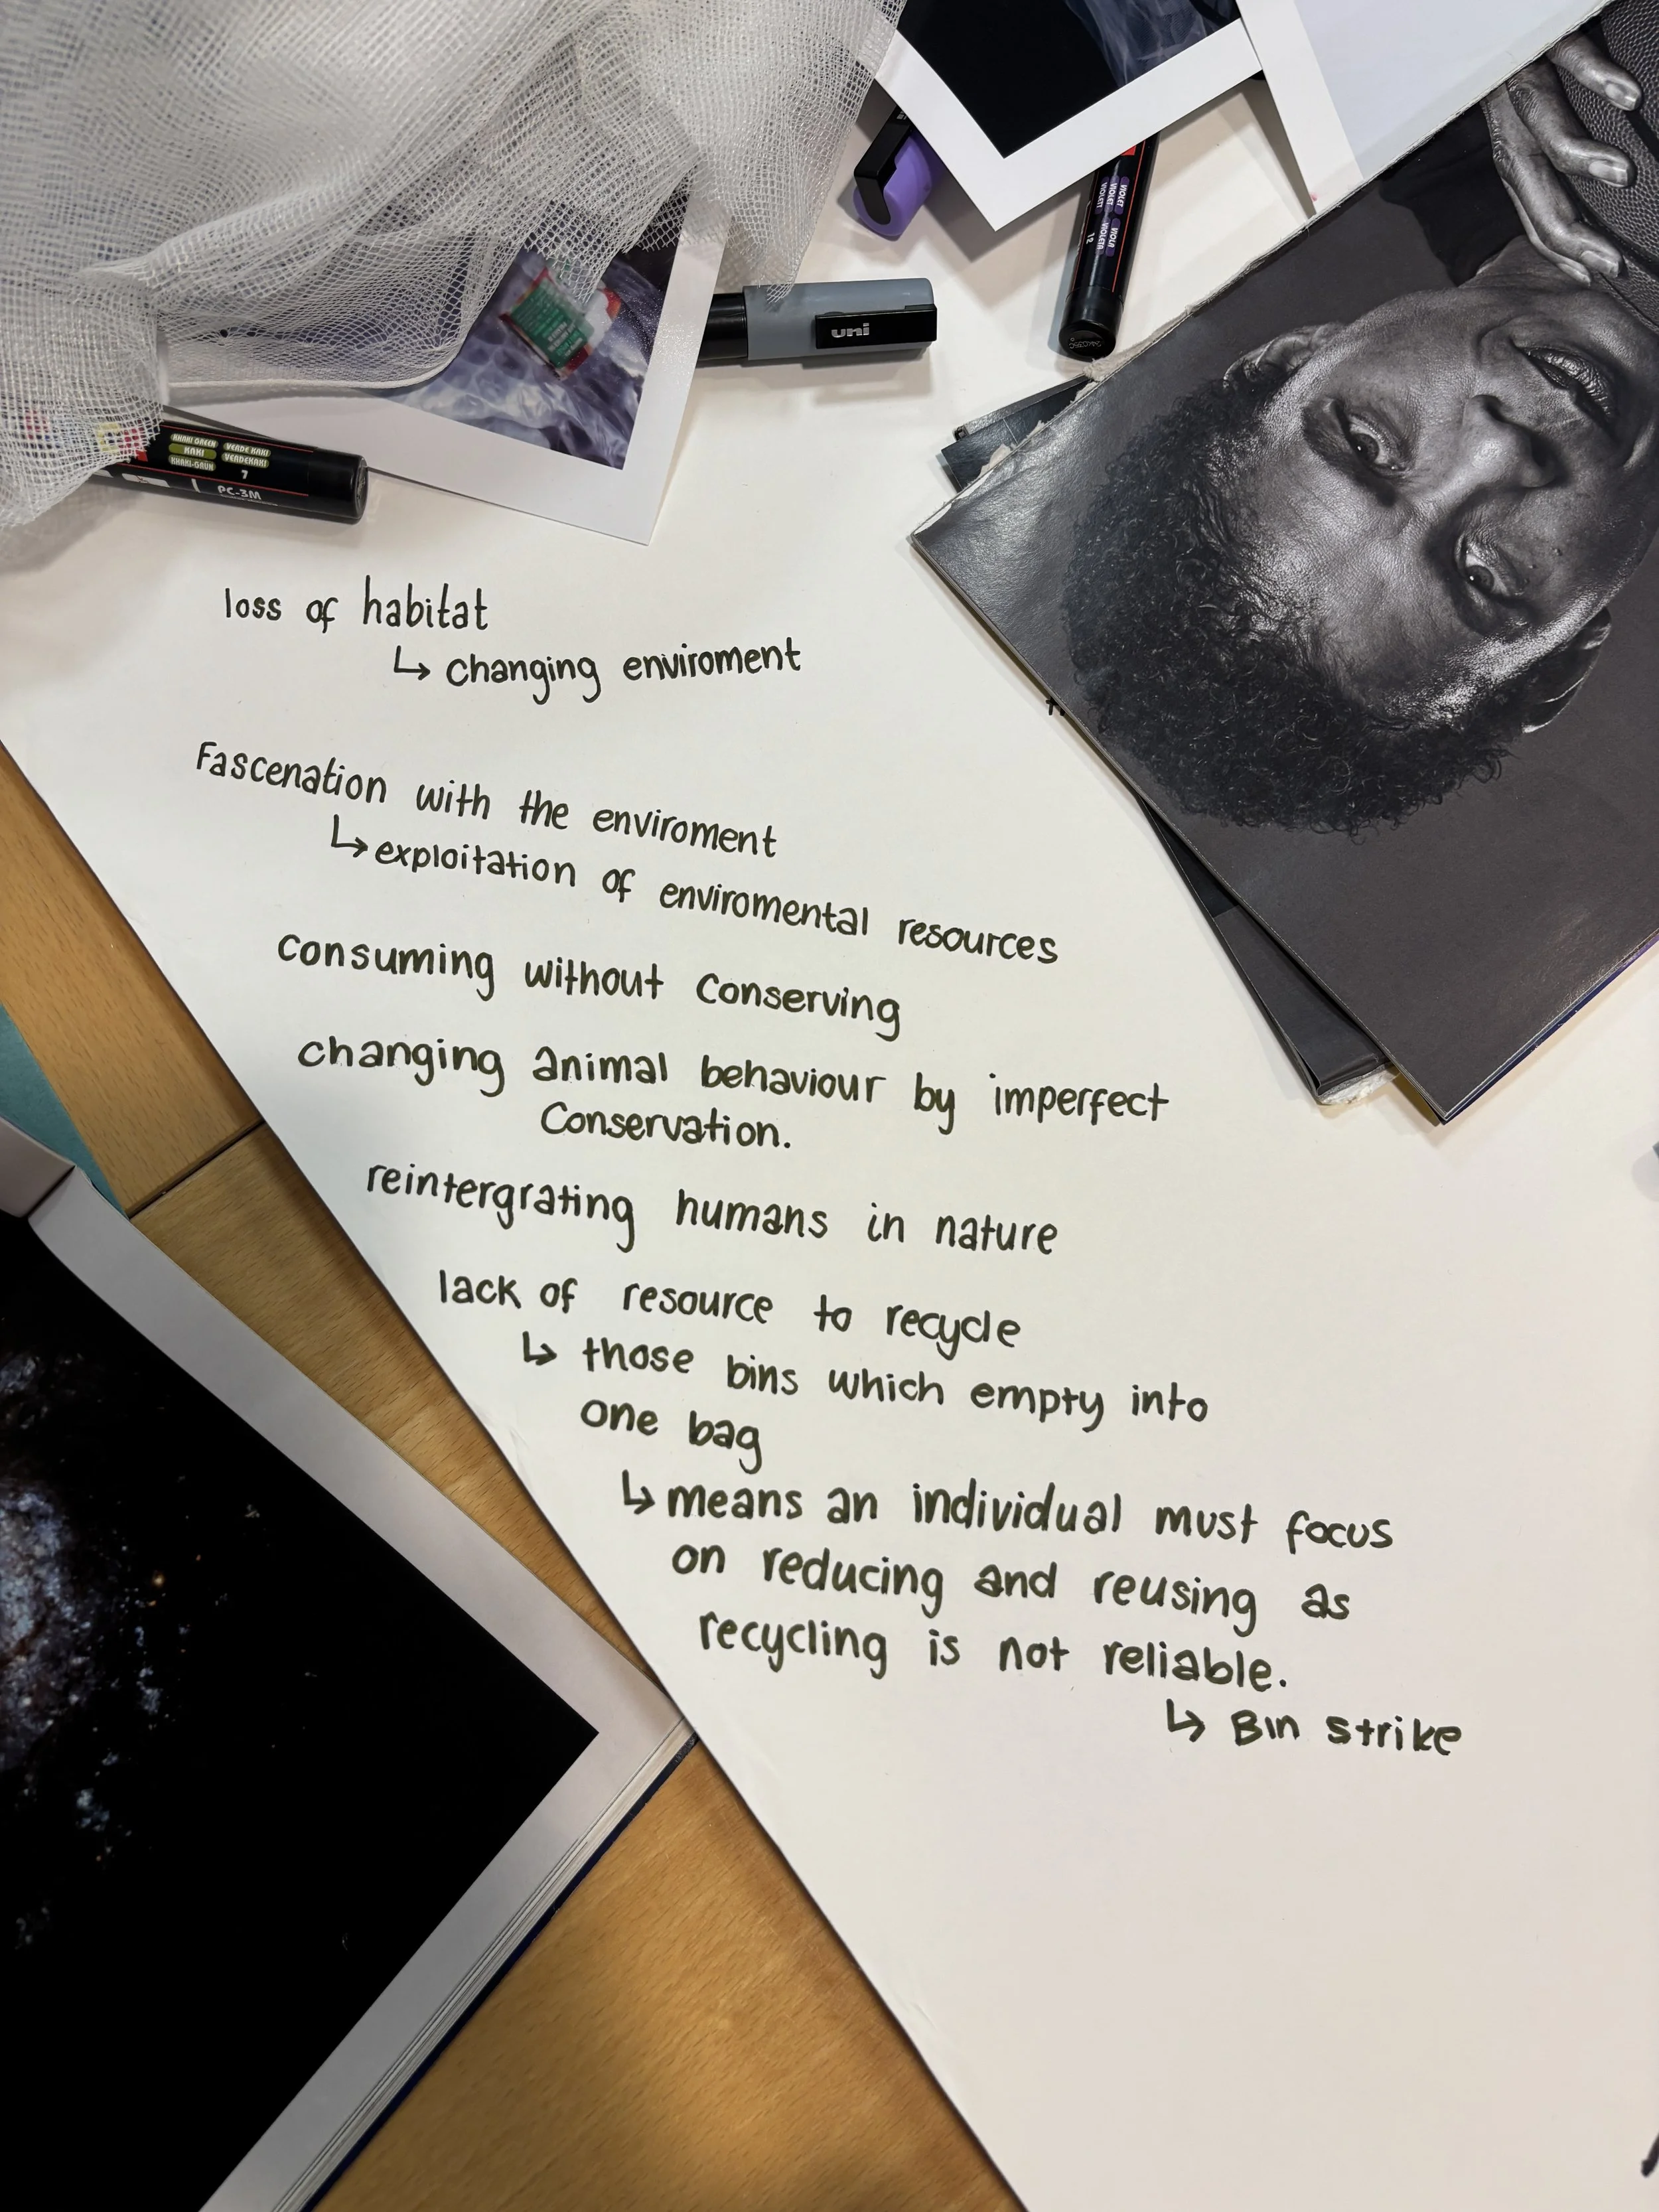 uni
VIOLET VIOLET VIOLA
VIOLETT VIOLETA
12
KHAKI GREEN VERDE KAKI
KAKI VERDEKAKI
KHAKI-GRÜN 7
PC-3M
loss of habitat
↳ changing enviroment
Fascenation with the enviroment
↳ exploitation of enviromental resources
consuming without conserving
changing animal behaviour by imperfect
Conservation.
reintergrating humans in nature
lack of resource to recycle
↳ those bins which empty into
one bag
↳ means an individual must focus
on reducing and reusing as
recycling is not reliable.
↳ Bin strike